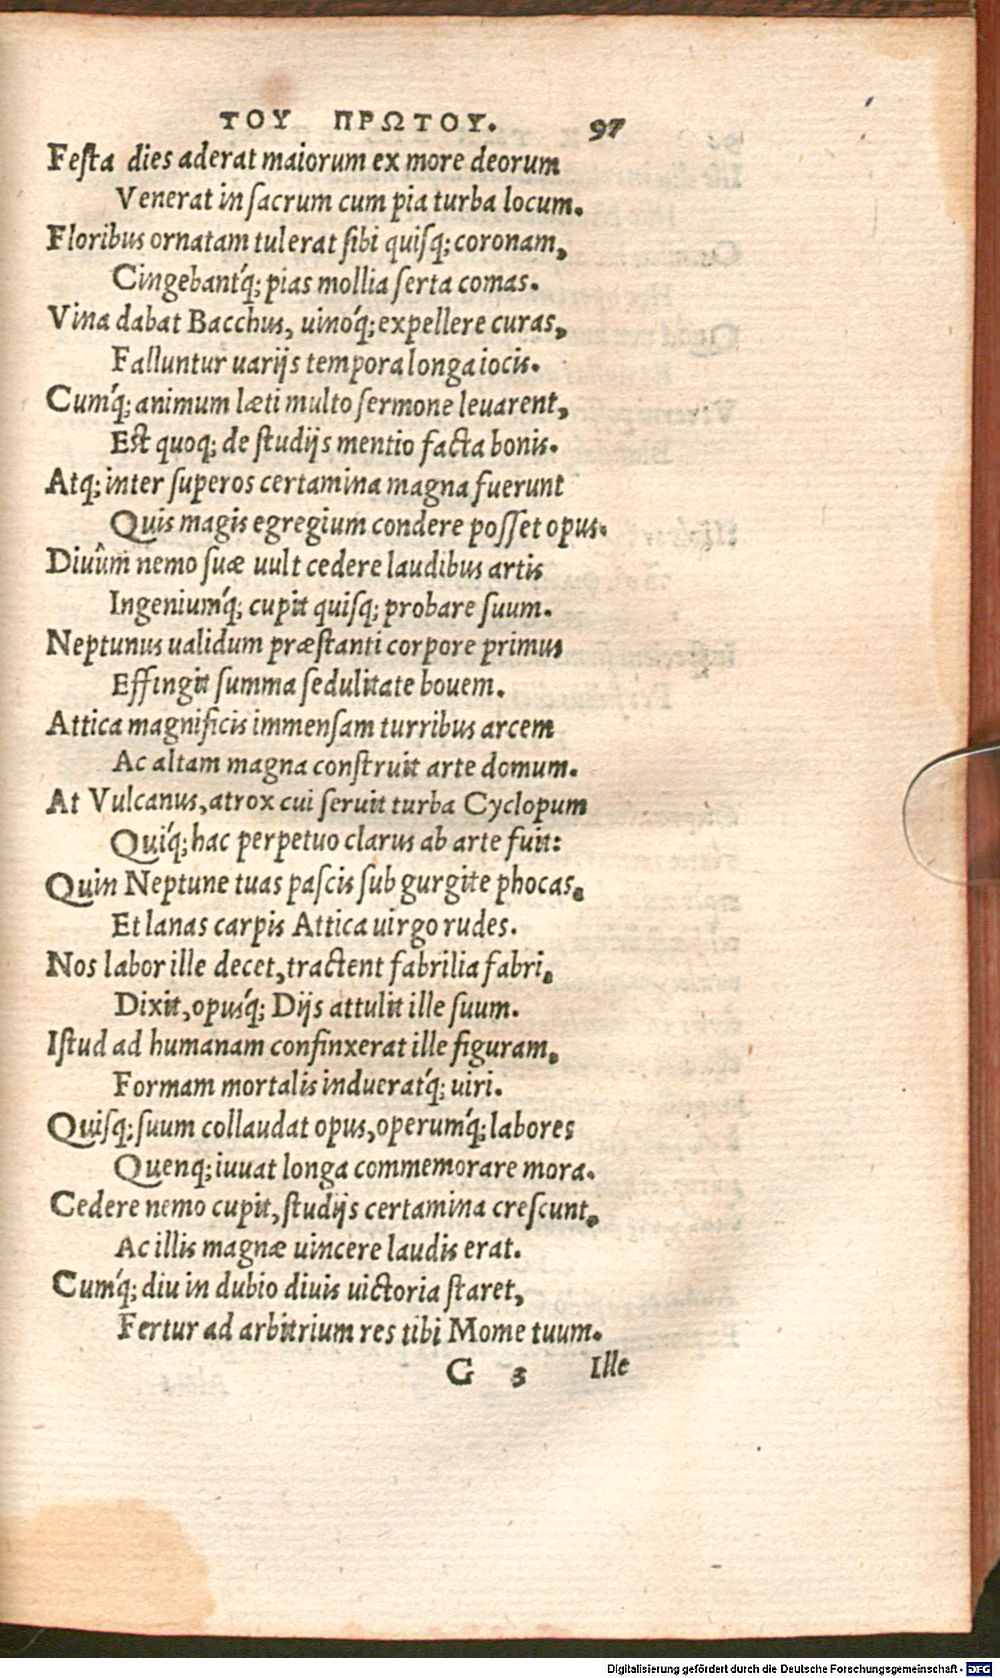 ΤΟΥ ΠΡΩΤΟΥ. 97
Feſta dies aderat maiorum ex more deorum
Venerat in ſacrum cum pia turba locum.
Floribus ornatam tulerat ſibi quiſq; coronam,
Cingebant'q; pias mollia ſerta comas.
Vina dabat Bacchus, uinó'q; expellere curas,
Falluntur uarijs tempora longa iocis.
Cum'q; animum læti multo ſermone leuarent,
Eſt quoq; de ſtudijs mentio facta bonis.
Atq; inter ſuperos certamina magna fuerunt
Quis magis egregium condere poſſet opus.
Diuûm nemo ſuæ uult cedere laudibus artis
Ingenium'q; cupit quiſq; probare ſuum.
Neptunus ualidum præſtanti corpore primus
Effingit ſumma ſedulitate bouem.
Attica magnificis immenſam turribus arcem
Ac altam magna conſtruit arte domum.
At Vulcanus, atrox cui ſeruit turba Cyclopum
Quí'q; hac perpetuo clarus ab arte fuit:
Quin Neptune tuas paſcis ſub gurgite phocas,
Et lanas carpis Attica uirgo rudes.
Nos labor ille decet, tractent fabrilia fabri,
Dixit, opus'q; Dijs attulit ille ſuum.
Iſtud ad humanam confinxerat ille figuram,
Formam mortalis induerat'q; uiri.
Quiſq; ſuum collaudat opus, operum'q; labores
Quenq; iuuat longa commemorare mora.
Cedere nemo cupit, ſtudijs certamina creſcunt,
Ac illis magnæ uincere laudis erat.
Cum'q; diu in dubio diuis uictoria ſtaret,
Fertur ad arbitrium res tibi Mome tuum.
G 3 Ille
Digitalisierung gefördert durch die Deutsche Forschungsgemeinschaft - DFG